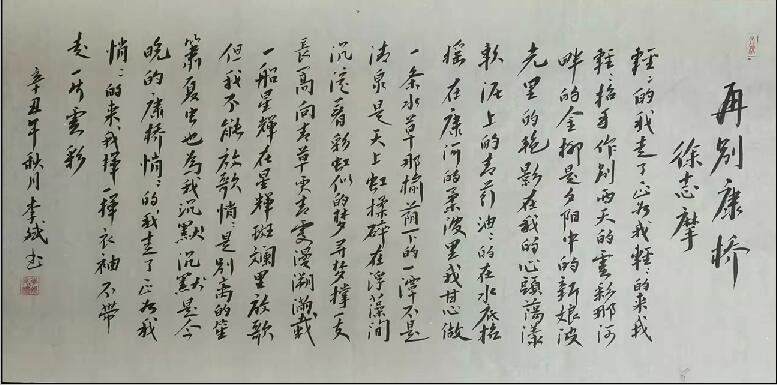 再别康桥
徐志摩
輕〻的我走了正如我輕〻的来我
輕〻招手作别西天的雲彩那河
畔的金柳是夕阳中的新娘波
光里的艳影在我的心頭荡漾
软泥上的青荇油〻的在水底招
摇在康河的柔波里我甘心做
一条水草那榆荫下的一潭不是
清泉是天上虹揉碎在浮藻间
沉淀着彩虹似的梦寻梦撑一支
長篙向青草更青處漫溯满載
一船星輝在星輝斑斓里放歌
但我不能放歌悄〻是别離的笙
箫夏虫也為我沉默沉默是今
晚的康桥悄〻的我走了正如我
悄〻的来我揮一揮衣袖不带
走一片雲彩
辛丑年秋月李斌书